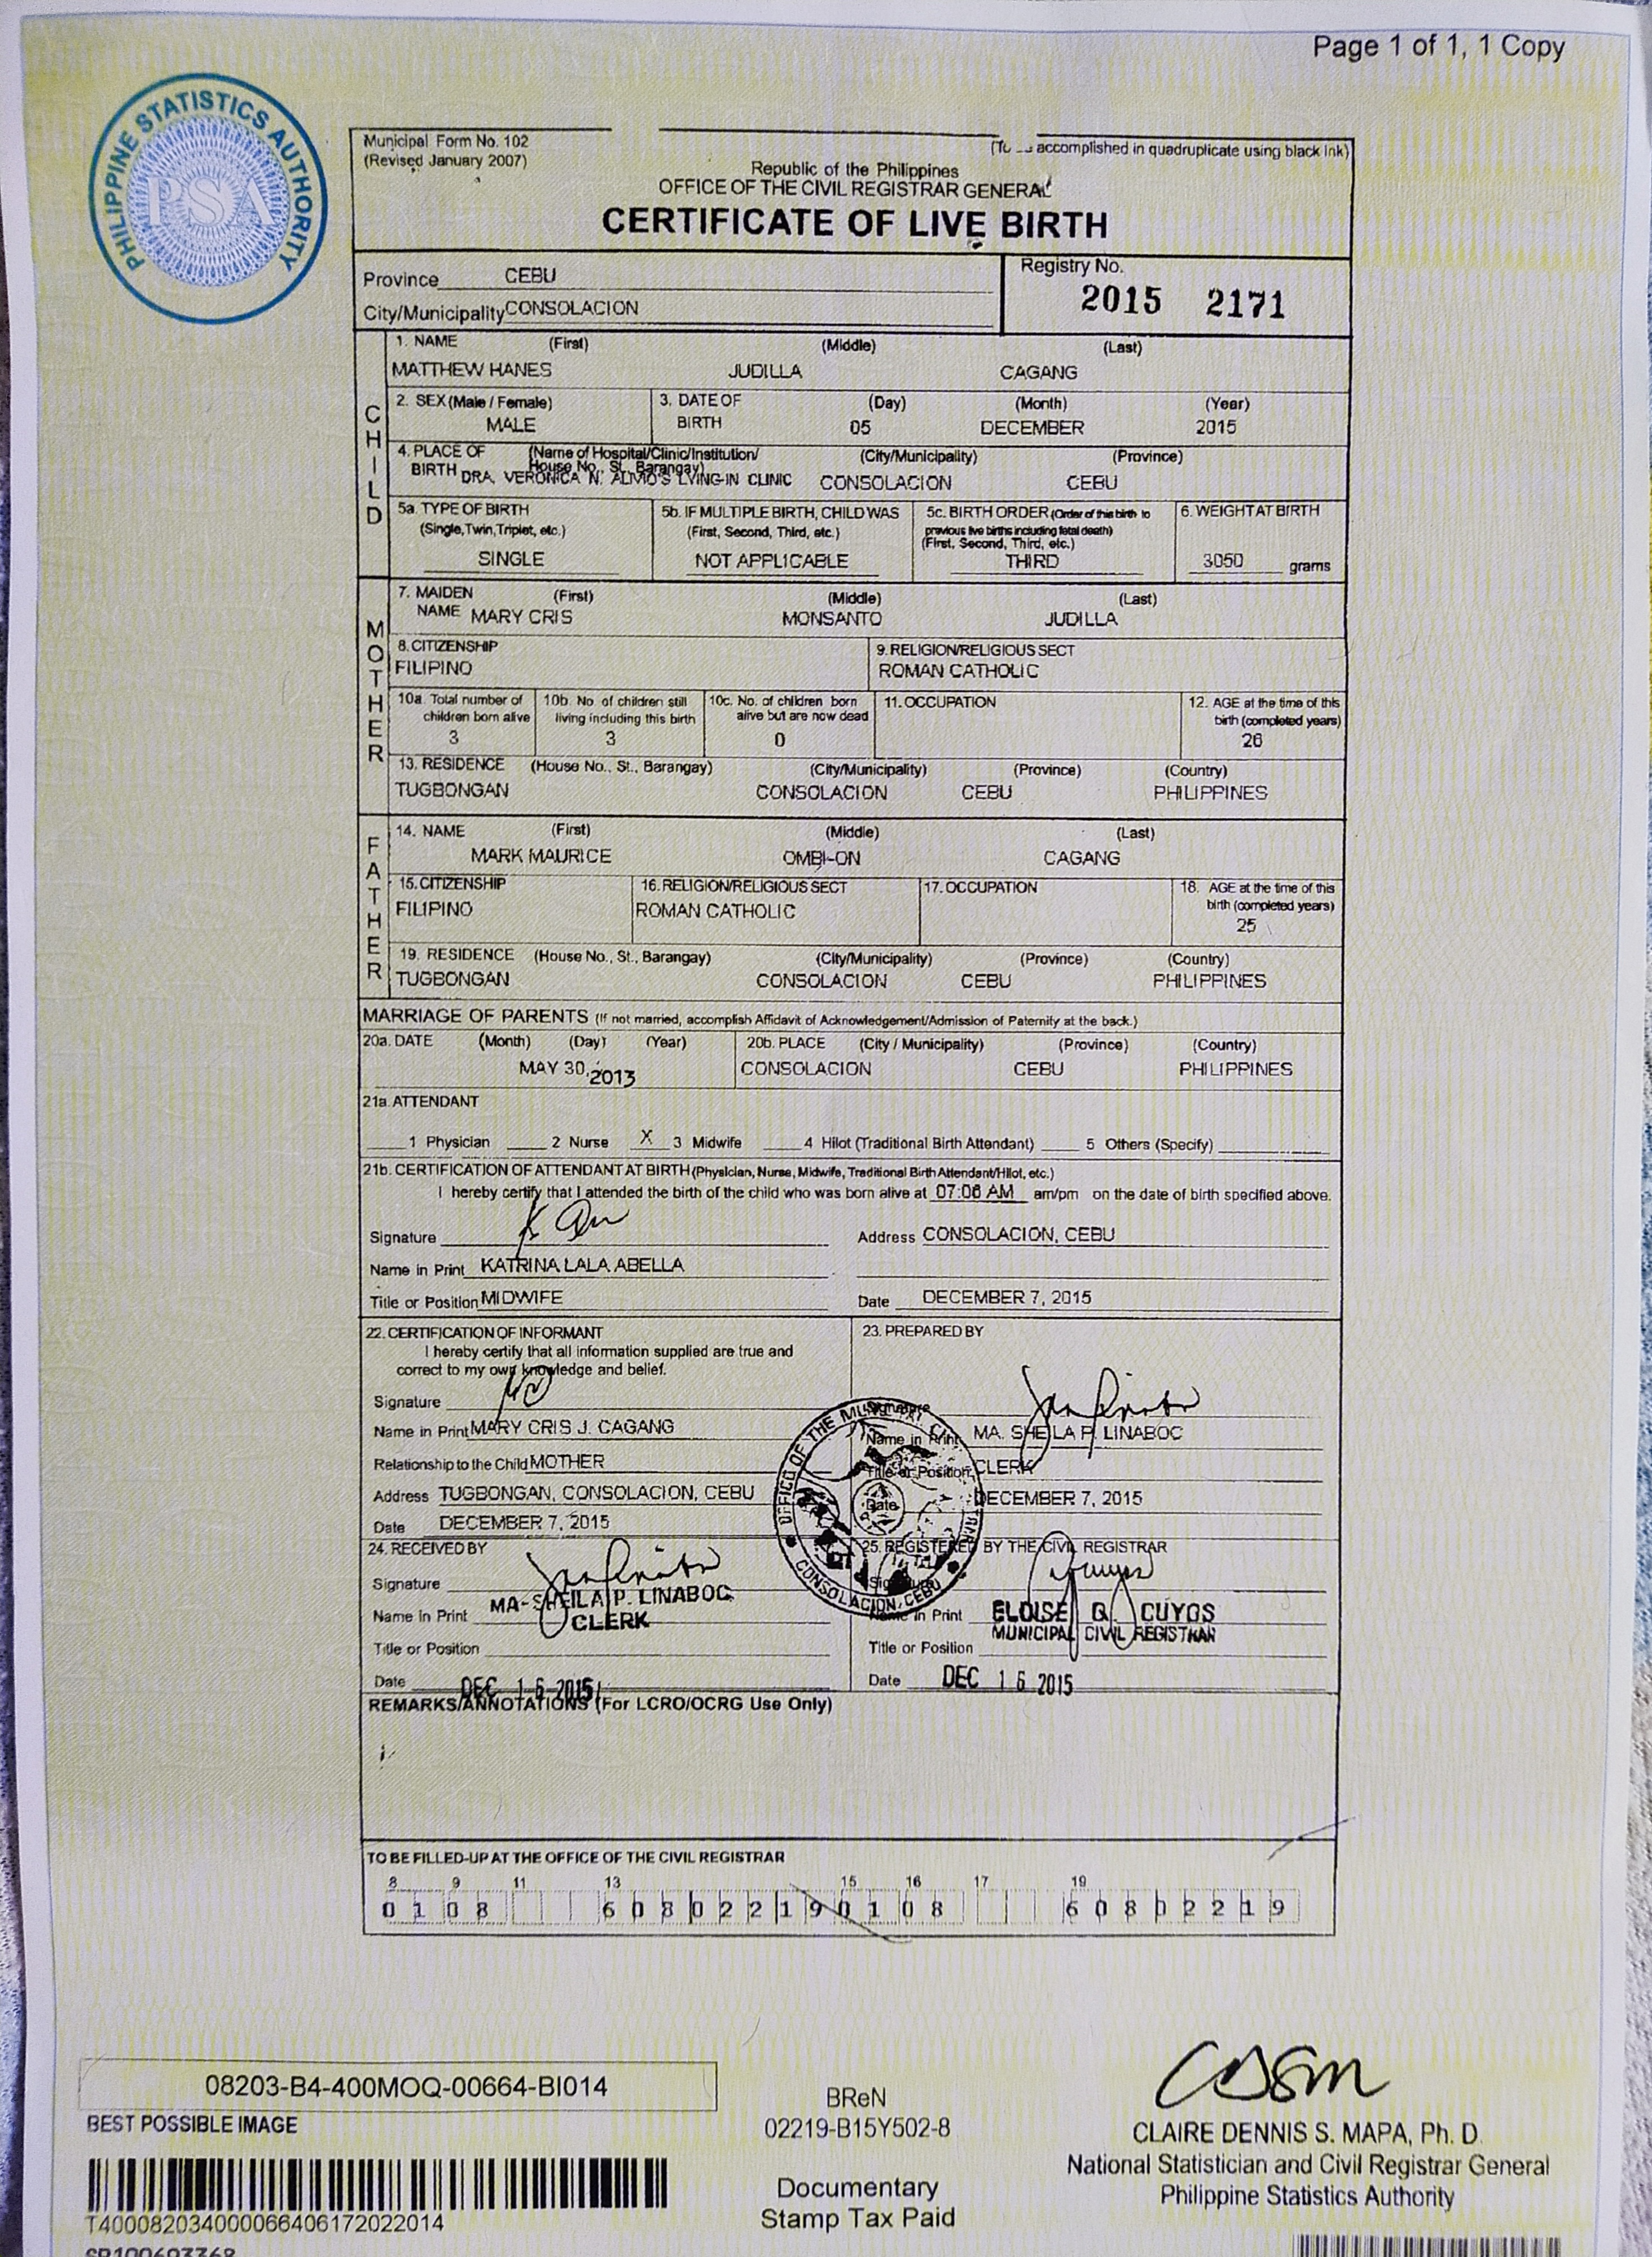 Page 1 of 1, 1 Copy
PHILIPPINE STATISTICS AUTHORITY
PSA
Municipal Form No. 102
(Revised January 2007)
accomplished in quadruplicate using black ink)
Republic of the Philippines
OFFICE OF THE CIVIL REGISTRAR GENERAL
CERTIFICATE OF LIVE BIRTH
Province CEBU
City/Municipality CONSOLACION
Registry No.
2015 2171
CHILD
1. NAME (First) (Middle) (Last)
MATTHEW HANES JUDILLA CAGANG
2. SEX (Male / Female) 3. DATE OF BIRTH (Day) (Month) (Year)
MALE 05 DECEMBER 2015
4. PLACE OF BIRTH (Name of Hospital/Clinic/Institution/ House No., St., Barangay) (City/Municipality) (Province)
DRA. VERONICA N. ALIVIO'S LYING-IN CLINIC CONSOLACION CEBU
5a. TYPE OF BIRTH (Single, Twin, Triplet, etc.)
SINGLE
5b. IF MULTIPLE BIRTH, CHILD WAS (First, Second, Third, etc.)
NOT APPLICABLE
5c. BIRTH ORDER (Order of this birth to previous live births including fetal death) (First, Second, Third, etc.)
THIRD
6. WEIGHT AT BIRTH
3050 grams
MOTHER
7. MAIDEN NAME (First) (Middle) (Last)
MARY CRIS MONSANTO JUDILLA
8. CITIZENSHIP
FILIPINO
9. RELIGION/RELIGIOUS SECT
ROMAN CATHOLIC
10a. Total number of children born alive
3
10b. No. of children still living including this birth
3
10c. No. of children born alive but are now dead
0
11. OCCUPATION
12. AGE at the time of this birth (completed years)
26
13. RESIDENCE (House No., St., Barangay) (City/Municipality) (Province) (Country)
TUGBONGAN CONSOLACION CEBU PHILIPPINES
FATHER
14. NAME (First) (Middle) (Last)
MARK MAURICE OMBI-ON CAGANG
15. CITIZENSHIP
FILIPINO
16. RELIGION/RELIGIOUS SECT
ROMAN CATHOLIC
17. OCCUPATION
18. AGE at the time of this birth (completed years)
25
19. RESIDENCE (House No., St., Barangay) (City/Municipality) (Province) (Country)
TUGBONGAN CONSOLACION CEBU PHILIPPINES
MARRIAGE OF PARENTS (If not married, accomplish Affidavit of Acknowledgement/Admission of Paternity at the back.)
20a. DATE (Month) (Day) (Year) 20b. PLACE (City / Municipality) (Province) (Country)
MAY 30, 2013 CONSOLACION CEBU PHILIPPINES
21a. ATTENDANT
1 Physician 2 Nurse X 3 Midwife 4 Hilot (Traditional Birth Attendant) 5 Others (Specify)
21b. CERTIFICATION OF ATTENDANT AT BIRTH (Physician, Nurse, Midwife, Traditional Birth Attendant/Hilot, etc.)
I hereby certify that I attended the birth of the child who was born alive at 07:06 AM am/pm on the date of birth specified above.
Signature Address CONSOLACION, CEBU
Name in Print KATRINA LALA ABELLA
Title or Position MIDWIFE Date DECEMBER 7, 2015
22. CERTIFICATION OF INFORMANT
I hereby certify that all information supplied are true and
correct to my own knowledge and belief.
Signature
Name in Print MARY CRIS J. CAGANG
Relationship to the Child MOTHER
Address TUGBONGAN, CONSOLACION, CEBU
Date DECEMBER 7, 2015
23. PREPARED BY
Signature
Name in Print MA. SHEILA P. LINABOC
Title or Position CLERK
Date DECEMBER 7, 2015
OFFICE OF THE
CONSOLACION, CEBU
24. RECEIVED BY
Signature
Name in Print MA- SHEILA P. LINABOC
CLERK
Title or Position
Date DEC 16 2015
25. REGISTERED BY THE CIVIL REGISTRAR
Signature
Name in Print ELOISE Q. CUYOS
MUNICIPAL CIVIL REGISTRAR
Title or Position
Date DEC 16 2015
REMARKS/ANNOTATIONS (For LCRO/OCRG Use Only)
TO BE FILLED-UP AT THE OFFICE OF THE CIVIL REGISTRAR
8 9 11 13 15 16 17 19
0 1 0 8 6 0 8 0 2 2 1 9 0 1 0 8 6 0 8 0 2 2 1 9
08203-B4-400MOQ-00664-BI014
BEST POSSIBLE IMAGE
T400082034000066406172022014
BReN
02219-B15Y502-8
Documentary
Stamp Tax Paid
CLAIRE DENNIS S. MAPA, Ph. D.
National Statistician and Civil Registrar General
Philippine Statistics Authority